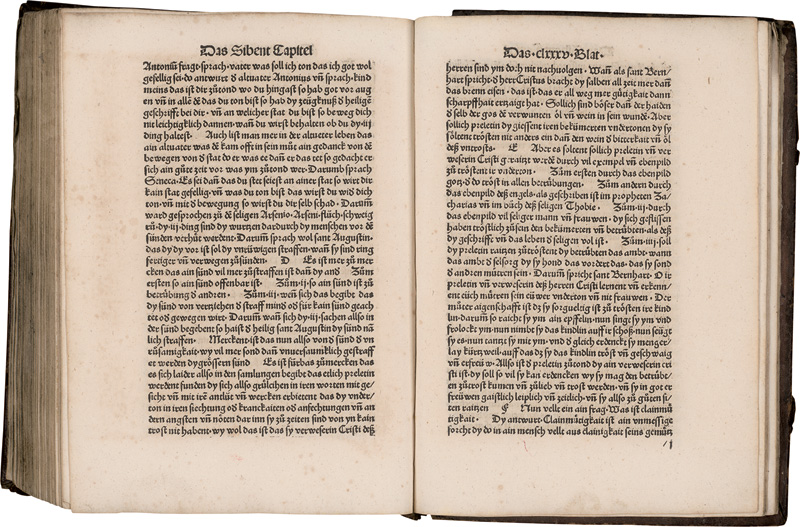 Das Sibent Capitel
Antoniū fragt·sprach·vater was soll ich ton das ich got wol
gesellig sei·do antwurt d altuater Antonius vn̄ sprach·kind
meins das ist dir zůtond wo du hingast so hab got vor aug
en vn̄ in alle dē das du ton bist so had dy zeügknuß d heiligē
geschrifft bei dir·vn̄ an welicher stat du bist so beweg dich
nit leichtigklich dannen·wan̄ du wirst behalten ob du dy·iij
ding haltest· Auch list man mer in der altueter leben das
ain altuater was dē kam offt in sein můt ain gedanck von dē
bewegen von d stat do er was do dan̄ er das tet so gedacht er
sich ain gůte zeit vor was ym zůtond wer·Darumb sprach
Seneca·Es sei dan̄ das du stet seiest an ainer stat so wirt dir
kain stat gesellig·vn̄ was du ton bist das wirst du wid dich
ton·vn̄ mit d bewegung so wirst du dir selb schad·Darum̄
ward gesprochen zů dē seligen Arsenio·Arseni·flüch·schweig
rů·dy·iij·ding sind dy wurtzen dardurch dy menschen vor dē
sünden verhüt werdent·Darum̄ sprach wol sant Augustin·
das dy dy vor ist sol dy vnrüwigen straffen·wan̄ sy sind ring
fertiger vn̄ verwegen zůsünden· D Es ist mer zů mer
cken das ain sünd vil mer zůstraffen ist dan̄ dy and Züm
ersten so ain sünd offenbar ist· Züm·ij·so ain sünd ist zů
betrübung d andren· Züm·iij·wen̄ sich das begibt das
dy sünd von verziehen d straff mind od für kain sünd geach
tet od gewegen wirt·Darum̄ wan̄ sich dy·iij·sachen also in
der sünd begebent so haist d heilig sant Augustin dy sünd nā
lich straffen· Merckent·ist das nun allso von d sünd d vn
rüsamigkait·wy vil mer sond dan̄ vnuersaumklich gestraff
et werden dy grössern sünd Es ist fürbas zůmercken das
es sich laider allso in den samlungen begibt das etlich preletin
werdent funden dy sich allso grülichen in iren worten mit ge
sicht vn̄ mit irē antlüt vn̄ wercken erbietent das dy vnder
ton in iren siechtung od kranckaiten od anfechtungen vn̄ an
dern angsten vn̄ nöten dar inn sy zů zeiten sind von yn kain
trost nit habent·wy wol das ist das sy verweserin Cristi deß
Das·clxxxv·Blat·
herren sind ym doch nit nachuolgen·Wan̄ als sant Bern
hart spricht·d herr Cristus bracht dy salben all zeit mer dan̄
das brenn eisen·das ist·das er all weg mer gütigkait dann
scharpffhait erzaigt hat·Söllich sind böser dan̄ der haiden
d selb der gos dē verwunten öl vn̄ wein in sein wundē·Aber
söllich preletin dy giessent iren bekümerten vndertonen dy sy
söltent trösten nit anders ein dan̄ den wein d bitterkait vn̄ öl
deß vntrosts· E Aber es soltent söllich preletin vn̄ ver
weserin Cristi graitzt werdē durch vil exempel vn̄ ebenpild
zů tröstent ir vnderton· Züm ersten durch das ebenpild
gotz·d do tröst in allen betrübungen· Züm andern durch
das ebenpild deß engels·als geschriben ist im propheten Za/
charias vn̄ im bůch deß seligen Thobie· Züm·iij·durch
das ebenpild vil seliger mann vn̄ frauwen·dy sich geflissen
haben tröstlich zůsein den bekümerten vn̄ betrübten·als deß
dy geschrifft vn̄ das leben d seligen vol ist· Züm·iiij·soll
dy preletin raitzen zůtröstent dy betrübten das ambt·wann
das ambt d selsorg dy sy hond das vordert das·das sy sond
d andren mütren sein·Darum̄ spricht sant Bernhart·O ir
preletin vn̄ verweserin deß herren Cristi lernent vn̄ erkenn/
ent eüch mütren sein eüwer vnderton vn̄ nit frauwen·Der
müter aigenschafft ist dz sy sorgueltig ist zů trösten ire kind
lin·darum̄ so raicht sy ym ain epffelin·nun singt sy ym vnd
frolockt ym·nun nimbt sy das kindlin auff ir schoß·nun seügt
sy es·nun tantzt sy mit ym·vnd d gleich erdenckt sy menger/
lay kürtzweil·auff das dz sy das kindlin tröst vn̄ geschwaig
vn̄ erfreü w·Allso ist d preletin zůtond dy ain verweserin cri
sti ist·dy soll so vil sy kan erdencken wy sy mag den betrübt/
en zůtrost kumen vn̄ zülieb vn̄ trost werden·vn̄ sy in got er
freüwen gaistlich leiplich vn̄ zeitlich·vn̄ sy allso zů güten si/
ten raitzen F Nun vellt ein ain frag·Was ist clainmü
tigkait· Dy antwurt·Clainmütigkait ist ain vnmessige
forcht dy do in ain mensch vellt aus clainigkait seins gemütz